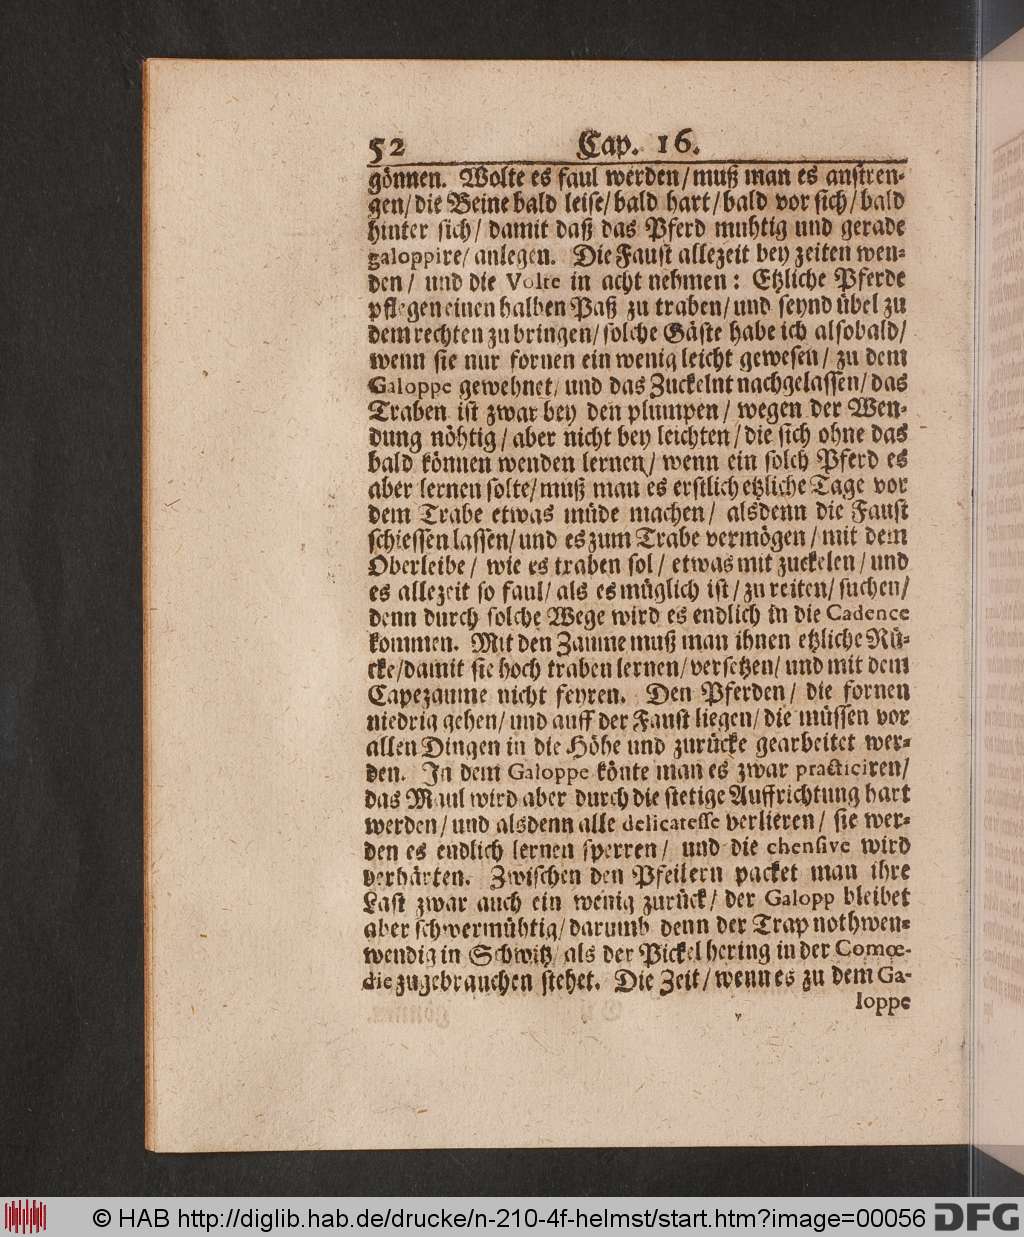 52 Cap. 16.
gönnen. Wolte es faul werden/ muß man es anstren-
gen/ die Beine bald leise/ bald hart/ bald vor sich/ bald
hinter sich/ damit daß das Pferd muhtig und gerade
galoppire/ anlegen. Die Faust allezeit bey zeiten wen-
den/ und die Volte in acht nehmen: Etzliche Pferde
pflegen einen halben Paß zu traben/ und seynd übel zu
dem rechten zu bringen/ solche Gäste habe ich alsobald/
wenn sie nur fornen ein wenig leicht gewesen/ zu dem
Galoppe gewehnet/ und das Zuckelnt nachgelassen/ das
Traben ist zwar bey den plumpen/ wegen der Wen-
dung nöhtig/ aber nicht bey leichten/ die sich ohne das
bald können wenden lernen/ wenn ein solch Pferd es
aber lernen solte/ muß man es erstlich etzliche Tage vor
dem Trabe etwas müde machen/ alsdenn die Faust
schiessen lassen/ und es zum Trabe vermögen/ mit dem
Oberleibe/ wie es traben sol/ etwas mit zuckelen/ und
es allezeit so faul/ als es müglich ist/ zu reiten/ suchen/
denn durch solche Wege wird es endlich in die Cadence
kommen. Mit den Zaume muß man ihnen etzliche Rü-
cke/ damit sie hoch traben lernen/ versetzen/ und mit dem
Capezaume nicht feyren. Den Pferden/ die fornen
niedrig gehen/ und auff der Faust liegen/ die müssen vor
allen Dingen in die Höhe und zurücke gearbeitet wer-
den. In dem Galoppe könte man es zwar practiciren/
das Maul wird aber durch die stetige Auffrichtung hart
werden/ und alsdenn alle delicatesse verlieren/ sie wer-
den es endlich lernen sperren/ und die chensive wird
verhärten. Zwischen den Pfeilern packet man ihre
Last zwar auch ein wenig zurück/ der Galopp bleibet
aber schwermühtig/ darumb denn der Trap nothwen-
wendig in Schwitz/ als der Pickelhering in der Comœ-
die zugebrauchen stehet. Die Zeit/ wenn es zu dem Ga-
loppe
© HAB http://diglib.hab.de/drucke/n-210-4f-helmst/start.htm?image=00056 DFG